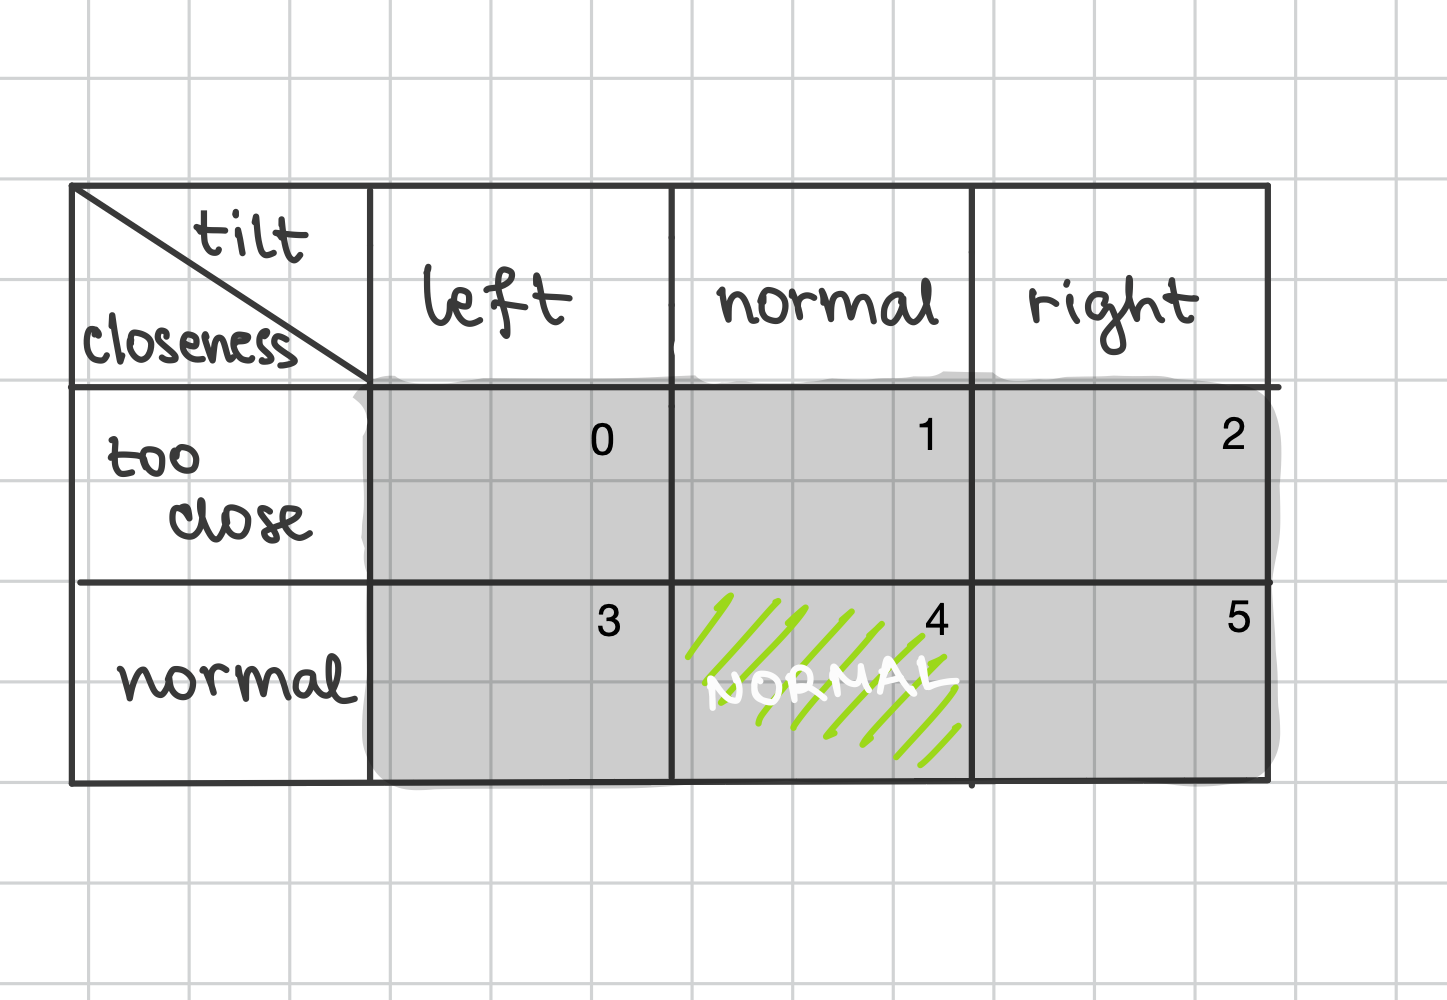 tilt
closeness
left normal right
too
close
0 1 2
normal
3 4 5
NORMAL